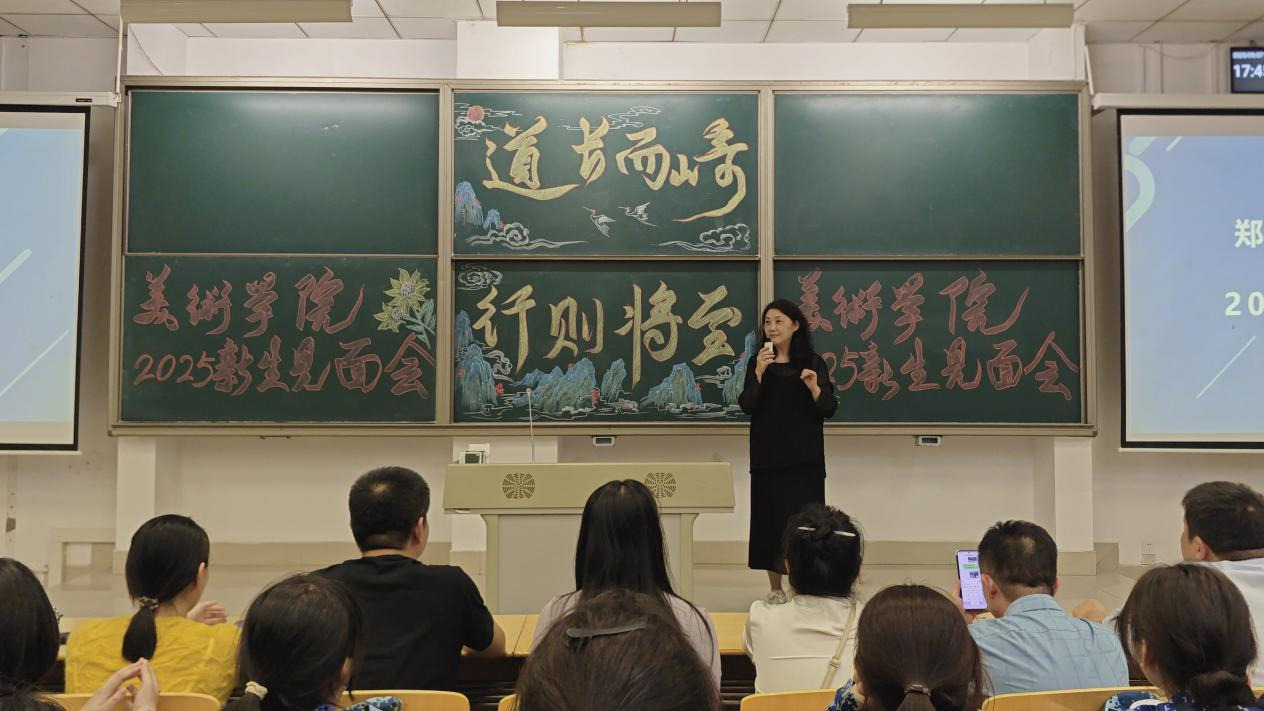 道长而崎
行则将至
美術学院
2025新生见面会
美術学院
25新生见面会
郑
20
17:4